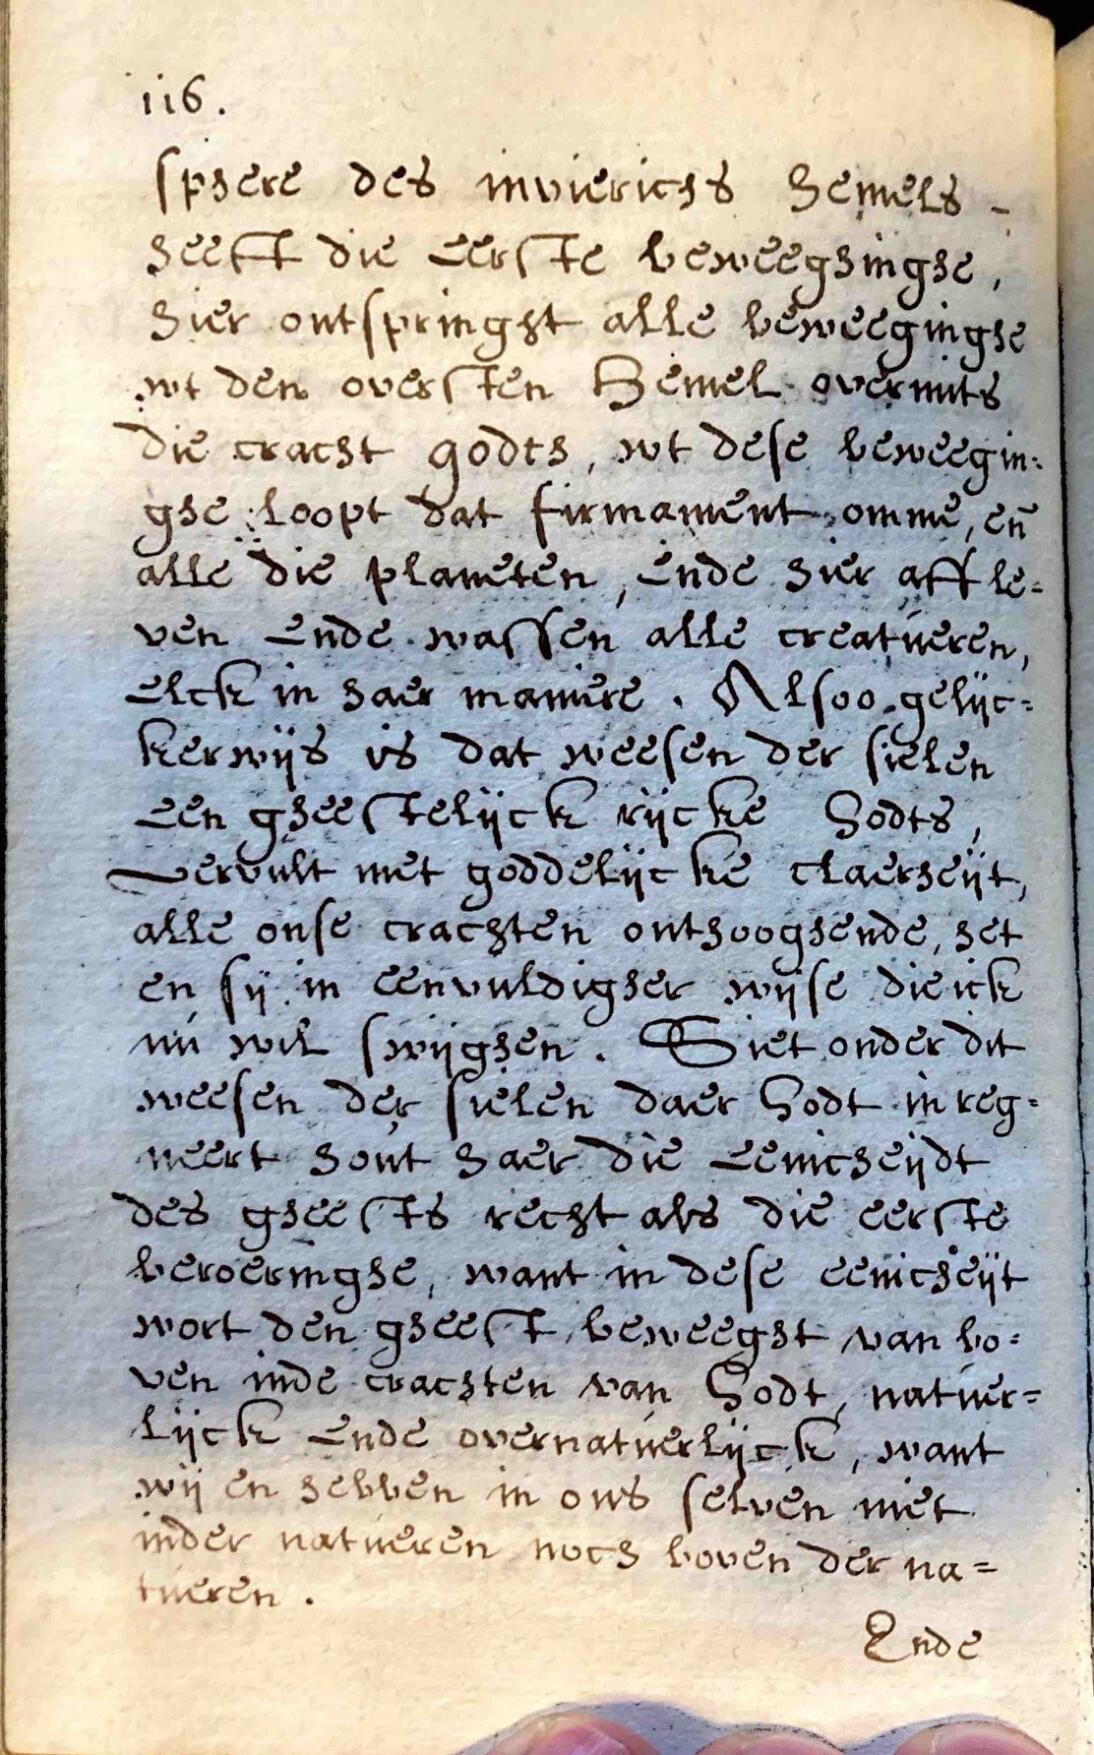 116.
sphere des invierichs hemels -
heeft die eerste beweeghinghe,
hier ontspringht alle beweeginghe
wt den oversten Hemel overmits
die cracht godts, wt dese beweegin=
ghe loopt dat firmament omme, en̄
alle die planeten, ende hier aff le=
ven ende wassen alle creatueren,
elck in haer maniere. Alsoo gelijc=
kerwijs is dat weesen der sielen
een gheestelijck rijcke Godts,
vervult met goddelijcke claerheijt,
alle onse crachten onthooghende, het
en sij in eenvuldigher wijse die ick
nu wil swijghen. Siet onder dit
weesen der sielen daer Godt in reg=
neert hout haer die eenicheijdt
des gheests recht als die eerste
beroeringhe, want in dese eenicheijt
wort den gheest beweeght van bo=
ven inde crachten van Godt, natuer=
lijck ende overnatuerlijck, want
wij en hebben in ons selven niet
inder natueren noch boven der na=
tueren.
Ende